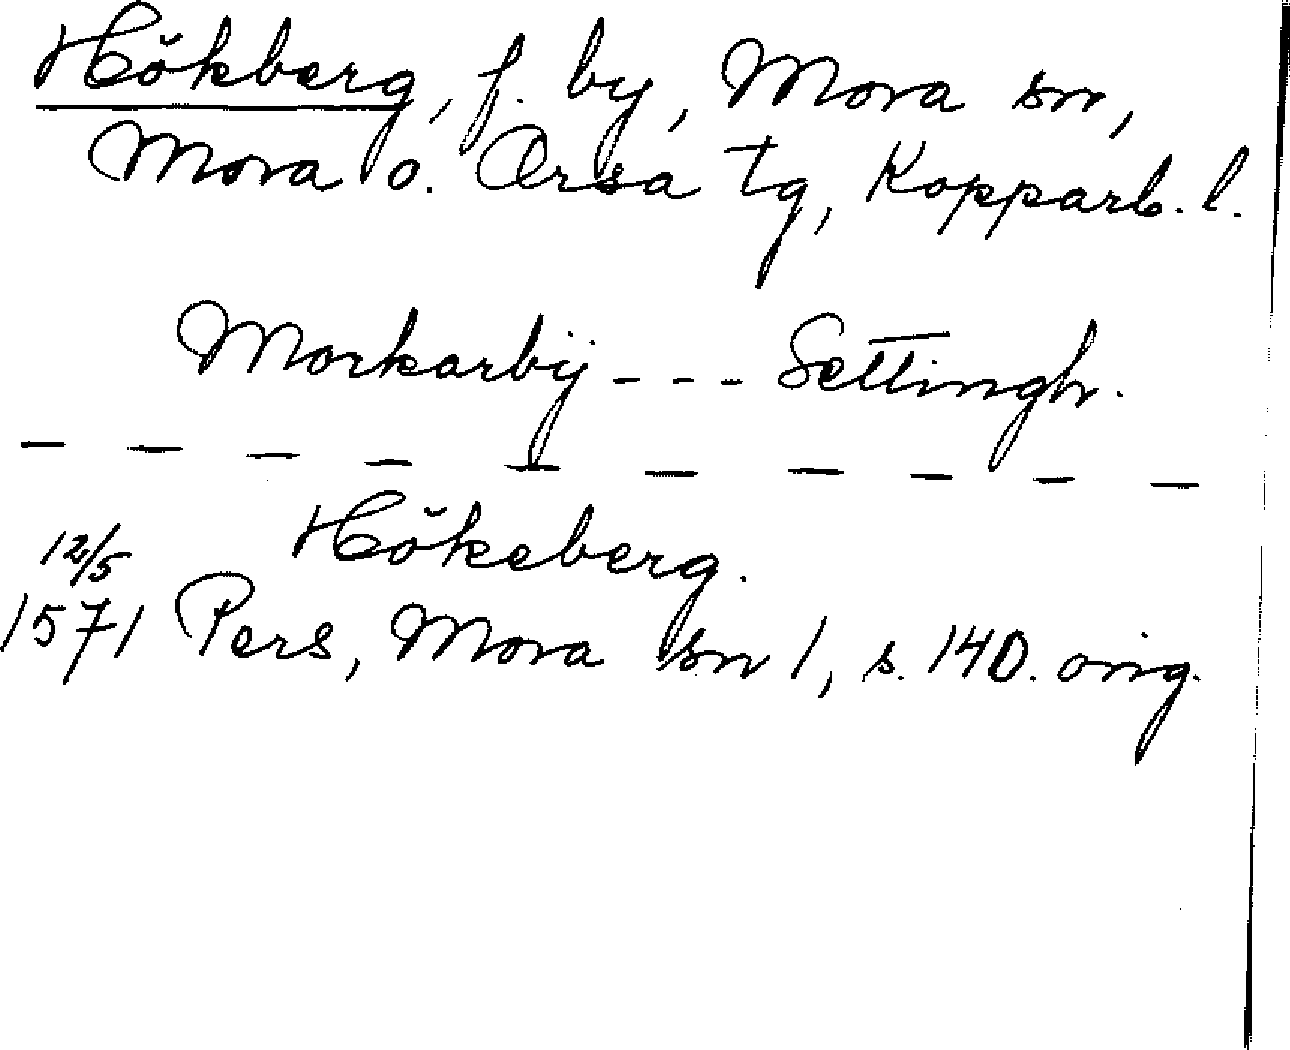 Hökberg, f. by, Mora sn,
Mora o. Orsa tg, Kopparb. l.
Morkarbÿ --- Settingh.
— — — — — — — — — —
Hökeberg.
12/5
1571 Pers, Mora sn 1, s. 140. orig.